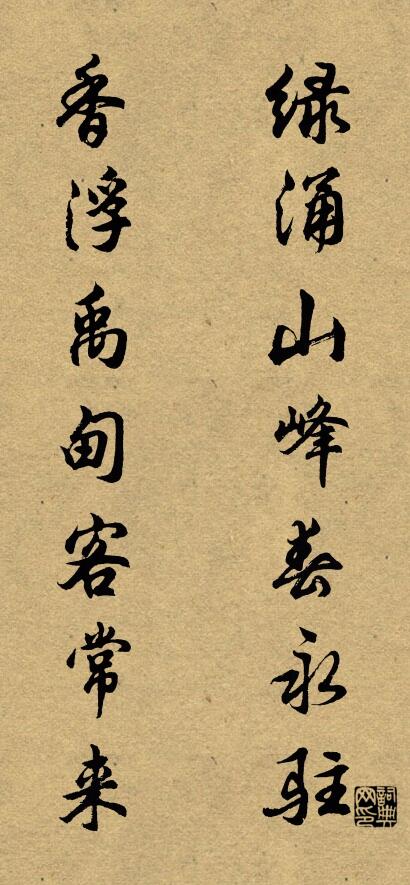 绿涌山峰春永驻
香浮禹甸客常来
詞典网印